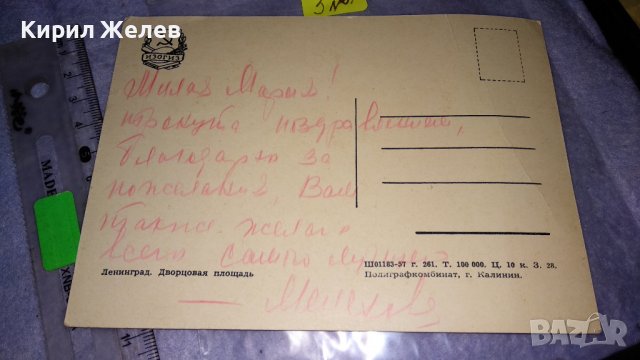 Кирил Желев
ИЗОГИЗ
Милая Мария!
поздравления,
благодарю за
пожелания, Вам
также желаю
всего самого лучшего
Ленинград. Дворцовая площадь
Ш01183-57 г. 261. Т. 100 000. Ц. 10 к. З. 28.
Полиграфкомбинат, г. Калинин.
BAZAR